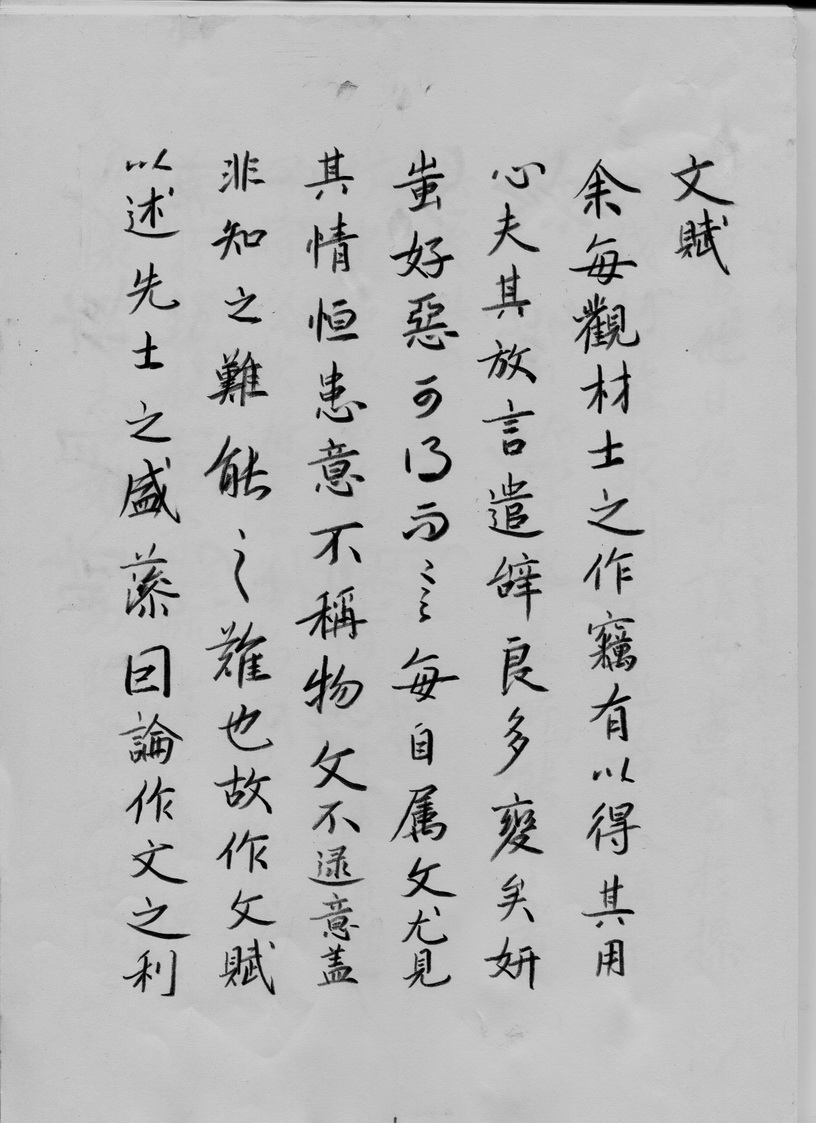 文賦
余每觀材士之作竊有以得其用
心夫其放言遣辤良多變矣妍
蚩好惡可得而言每自属文尤見
其情恒患意不稱物文不逮意盖
非知之難能之難也故作文賦
以述先士之盛藻因論作文之利